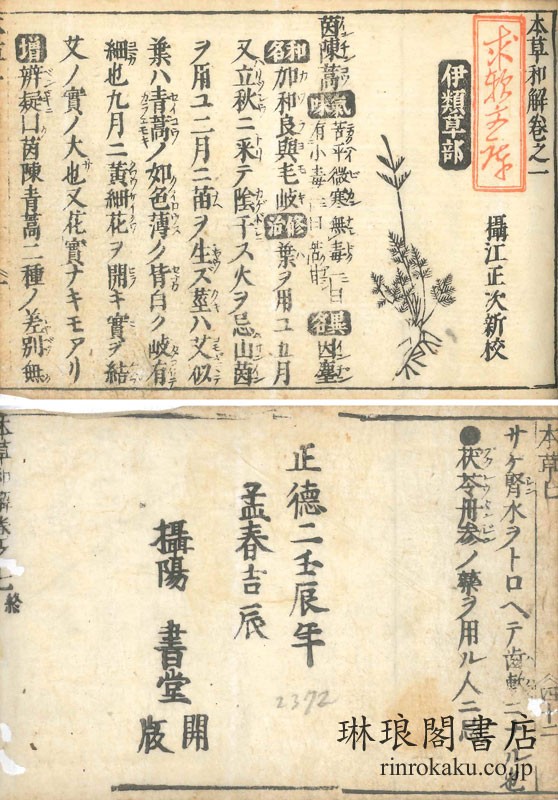 本草和解卷之一
攝江正次新校
伊類草部
茵陳蒿 氣味 苦平微寒無毒一曰有小毒一曰苦甘 異名 因塵
和名 加和良與毛岐 修治 葉ヲ用ユ五月
又立秋ニ采テ陰干ス火ヲ忌山茵
ヲ用ユ二月ニ苗ヲ生ズ莖ハ艾似
葉ハ青蒿ノ如色薄ク皆白ク岐有
細也九月ニ黃細花ヲ開キ實ヲ結
艾ノ實ノ大也又花實ナキモアリ
增 辨疑ニ曰茵陳青蒿二種ノ差別無
サケ腎水ヲトロヘテ齒軟
●茯苓
參ノ藥ヲ用ル人ニ忌
正德二壬辰年
孟春吉辰
攝陽 書堂
開版
2372
終
琳琅閣書店
rinrokaku.co.jp